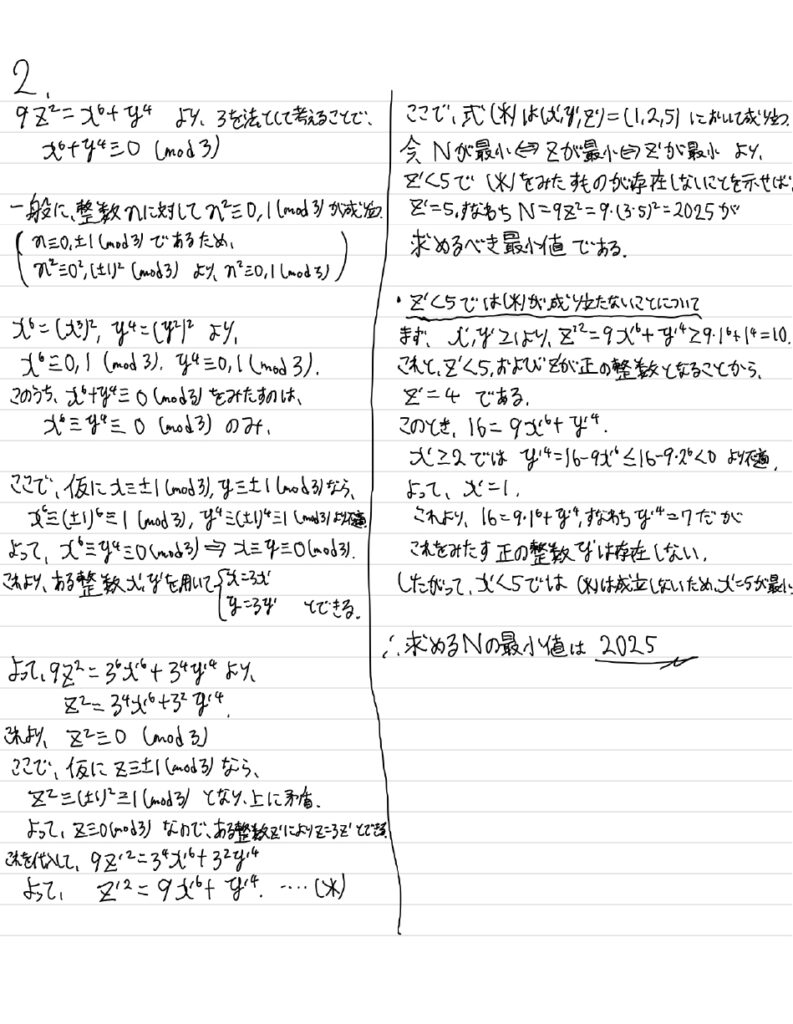 2.
9z² = x⁶ + y⁴ より、3を法として考えることで、
x⁶+y⁴≡0 (mod 3)
一般に、整数nに対してn²≡0,1(mod 3)が成り立つ
(n≡0,±1(mod 3)であるため、
n²≡0²,(±1)² (mod 3) より、n²≡0,1(mod 3))
x⁶=(x³)², y⁴=(y²)² より、
x⁶≡0,1 (mod 3). y⁴≡0,1(mod 3).
このうち、x⁶+y⁴≡0(mod 3)をみたすのは、
x⁶≡y⁴≡0 (mod 3) のみ、
ここで、仮にx≡±1(mod 3), y≡±1(mod 3)なら、
x⁶≡(±1)⁶≡1(mod 3), y⁴≡(±1)⁴≡1(mod 3)より不適
よって、x⁶≡y⁴≡0(mod 3)⇒x≡y≡0(mod 3).
これより、ある整数x',y'を用いて{x=3x'
y=3y' とできる.
よって、9z²=3⁶x'⁶+3⁴y'⁴ より、
z²=3⁴x'⁶+3²y'⁴.
これより、z²≡0 (mod 3)
ここで、仮にz≡±1(mod 3)なら、
z²≡(±1)²≡1(mod 3) となり、上に矛盾.
よって、z≡0(mod 3)なので、ある整数z'によりz=3z'とできる.
これを代入して、9z'²=3⁴x'⁶+3²y'⁴
よって、 z'²=9x'⁶+y'⁴. ‥‥(※)
ここで、式(※)は(x',y',z')=(1,2,5)において成り立つ.
今 Nが最小⇔zが最小⇔z'が最小 より、
z'<5で(※)をみたすものが存在しないことを示せば、
z'=5,すなわちN=9z²=9・(3・5)²=2025が
求めるべき最小値である.
・z'<5では(※)が成り立たないことについて
まず、x',y'≧1より、z'²=9x'⁶+y'⁴≧9・1⁶+1⁴=10.
これと、z'<5,およびz'が正の整数となることから、
z'=4 である.
このとき、16=9x'⁶+y'⁴.
x'≧2では y'⁴=16-9x'⁶≦16-9・2⁶<0 より不適,
よって、x'=1.
これより、16=9・1⁶+y'⁴,すなわちy'⁴=7だが
これをみたす正の整数y'は存在しない.
したがって、x'<5では(※)は成立しないため、x'=5が最小
∴求めるNの最小値は 2025